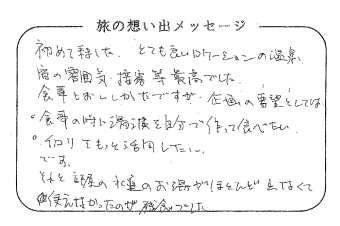 旅の想い出メッセージ
初めて来ました。とても良いロケーションの温泉、
宿の雰囲気・接客等最高でした。
食事もおいしかったですが、企画の要望としては
・食事の時に湯波を自分で作って食べたい。
・イロリをもっと活用したい。
です。
それと部屋の水道のお湯がほとんど出なくて
使えなかったのが残念でした